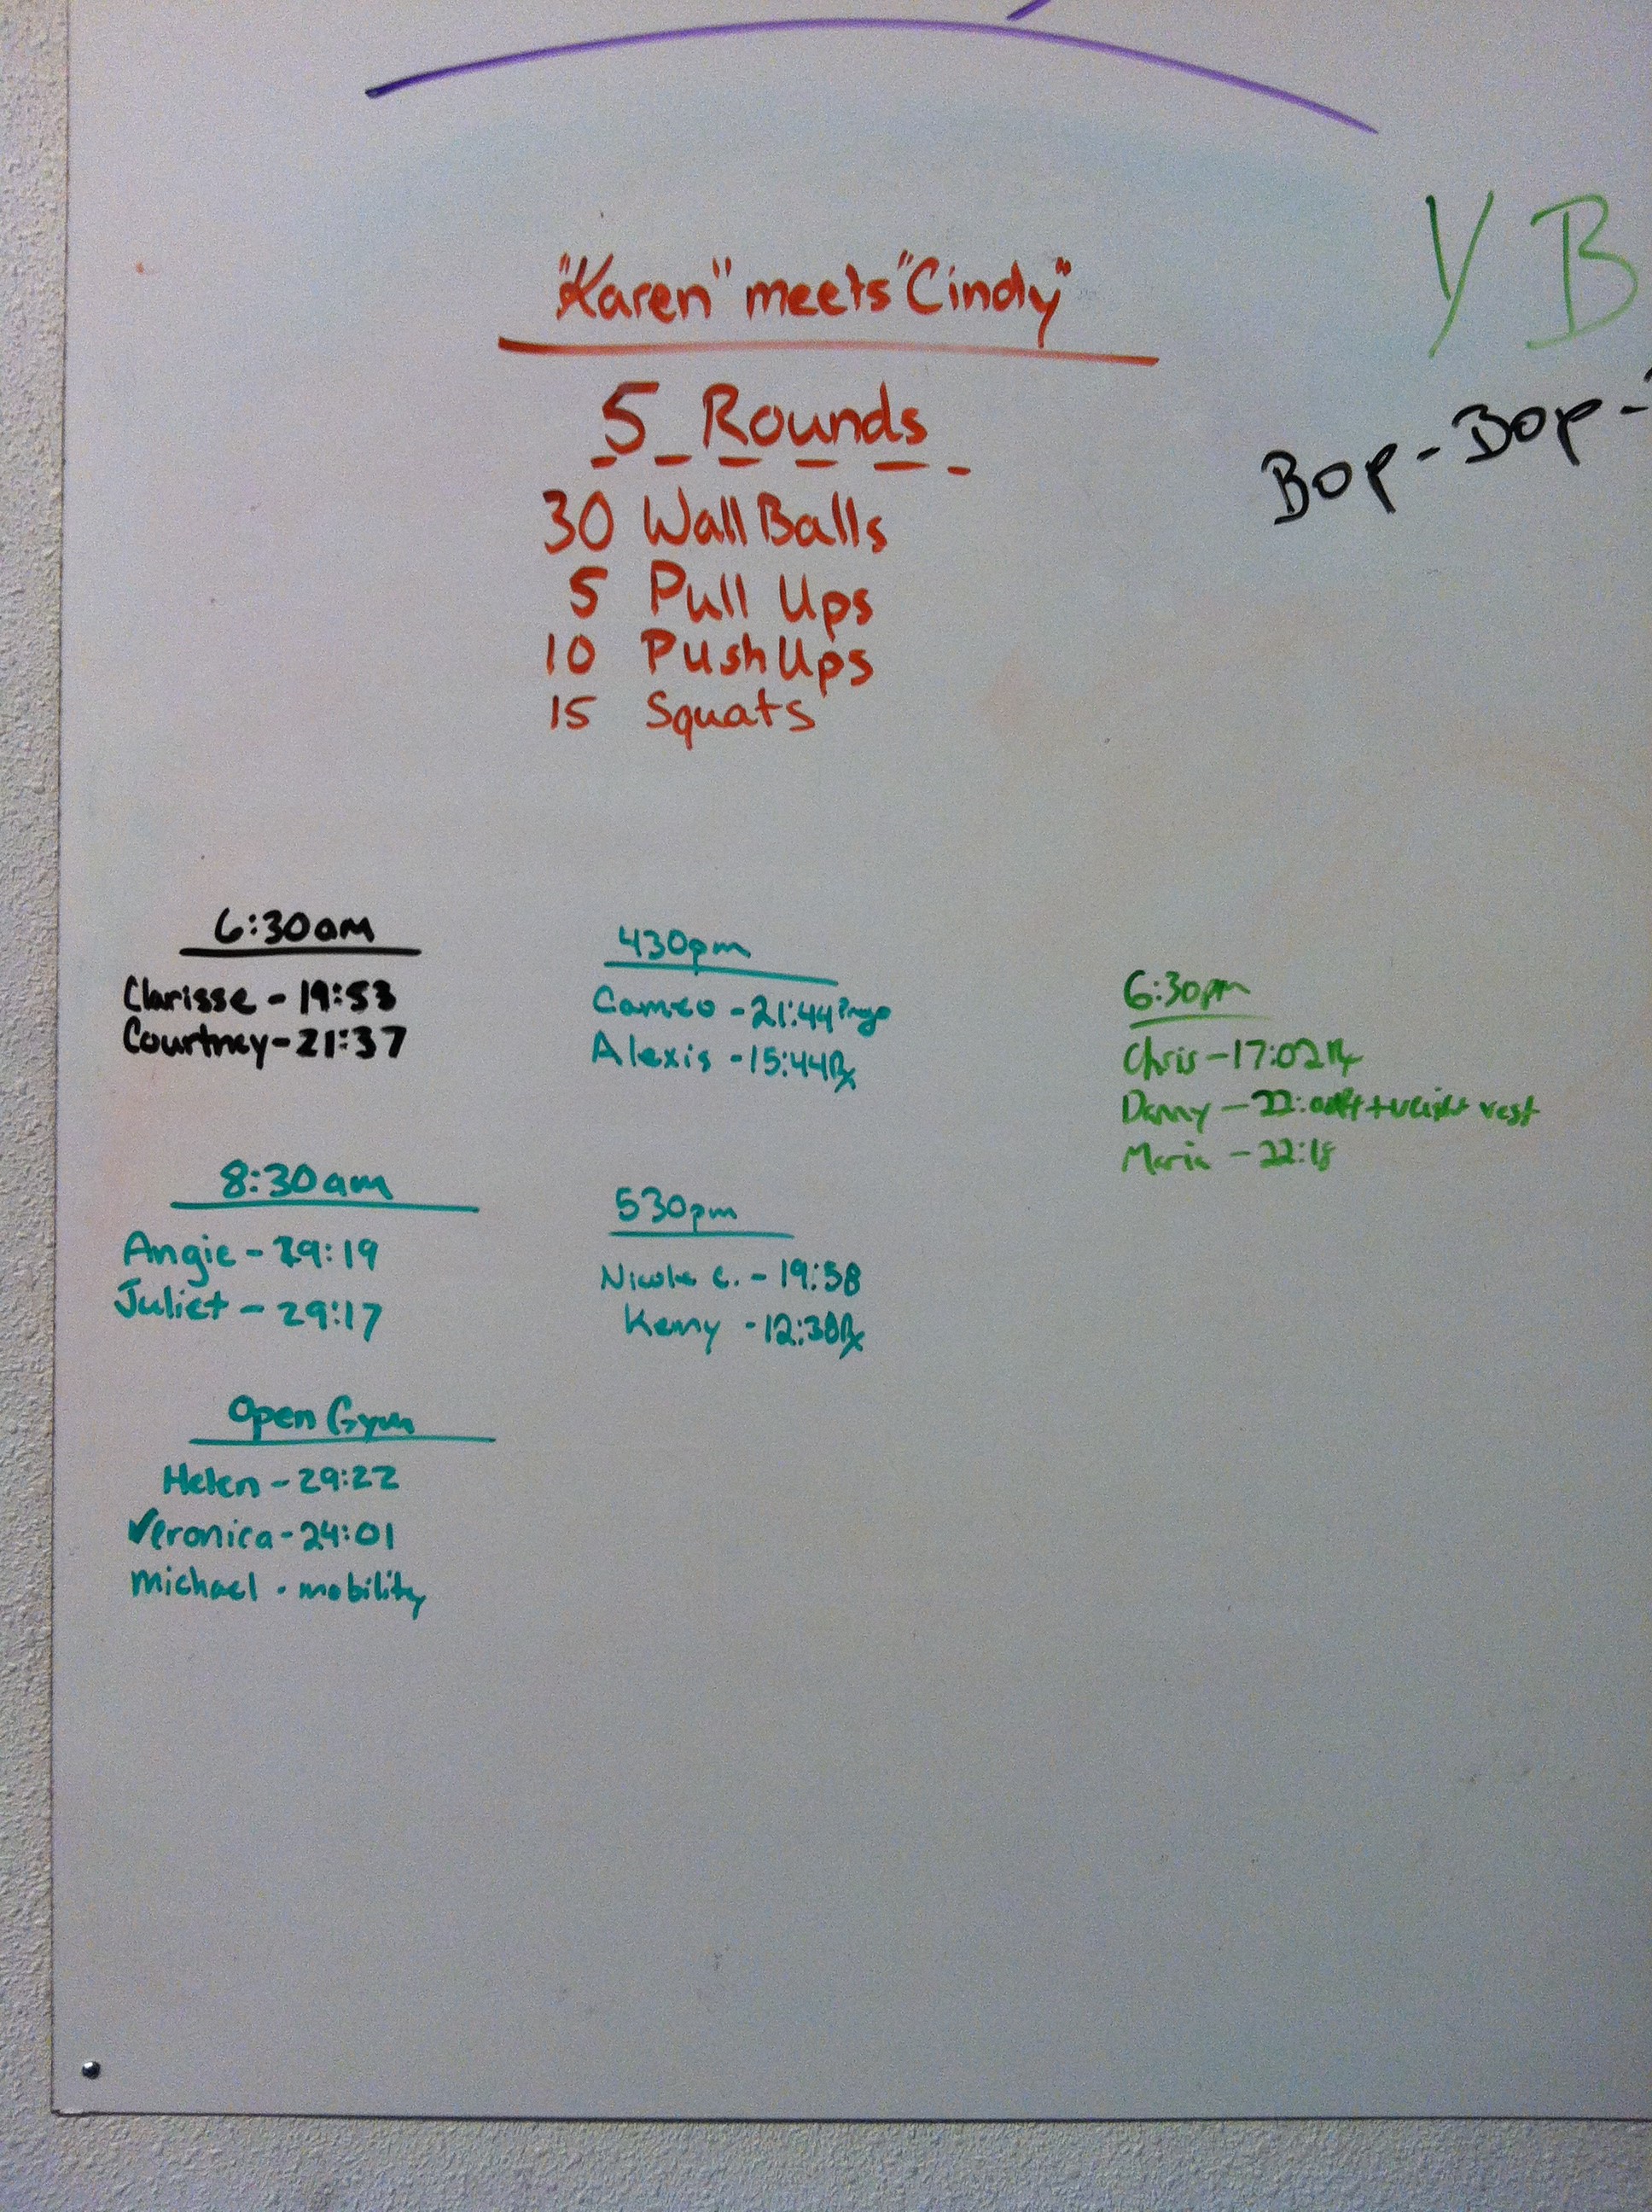 "Karen" meets "Cindy"
5 Rounds
30 Wall Balls
5 Pull Ups
10 Push Ups
15 Squats
Y B
Bop-Bop-
6:30am
Clarisse - 19:53
Courtney - 21:37
8:30am
Angie - 29:19
Juliet - 29:17
Open Gym
Helen - 29:22
Veronica - 24:01
Michael - mobility
430pm
Cameo - 21:44
Alexis - 15:44 Rx
530pm
Nicole C. - 19:58
Kenny - 12:38 Rx
6:30pm
Chris - 17:02 Rx
Danny - + weight vest
Maria - 22:18